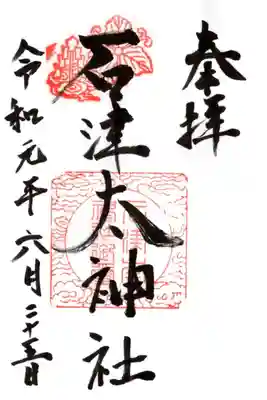 奉拝
石津太神社
令和元年六月二十五日